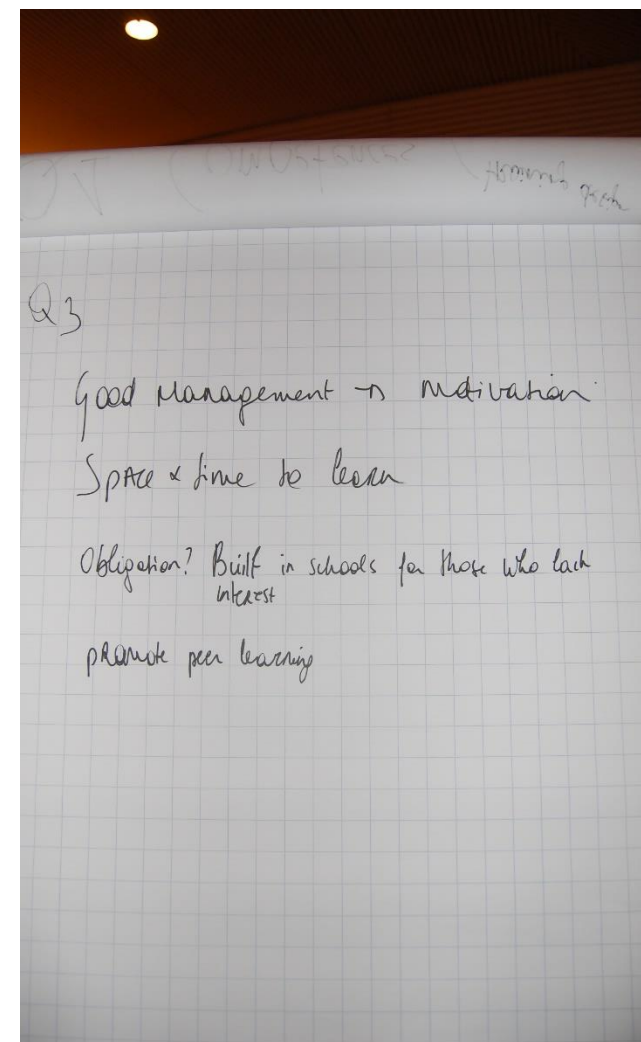 Q3
Good Management → Motivation
Space & time to learn
Obligation? Built in schools for those who lack
interest
promote peer learning